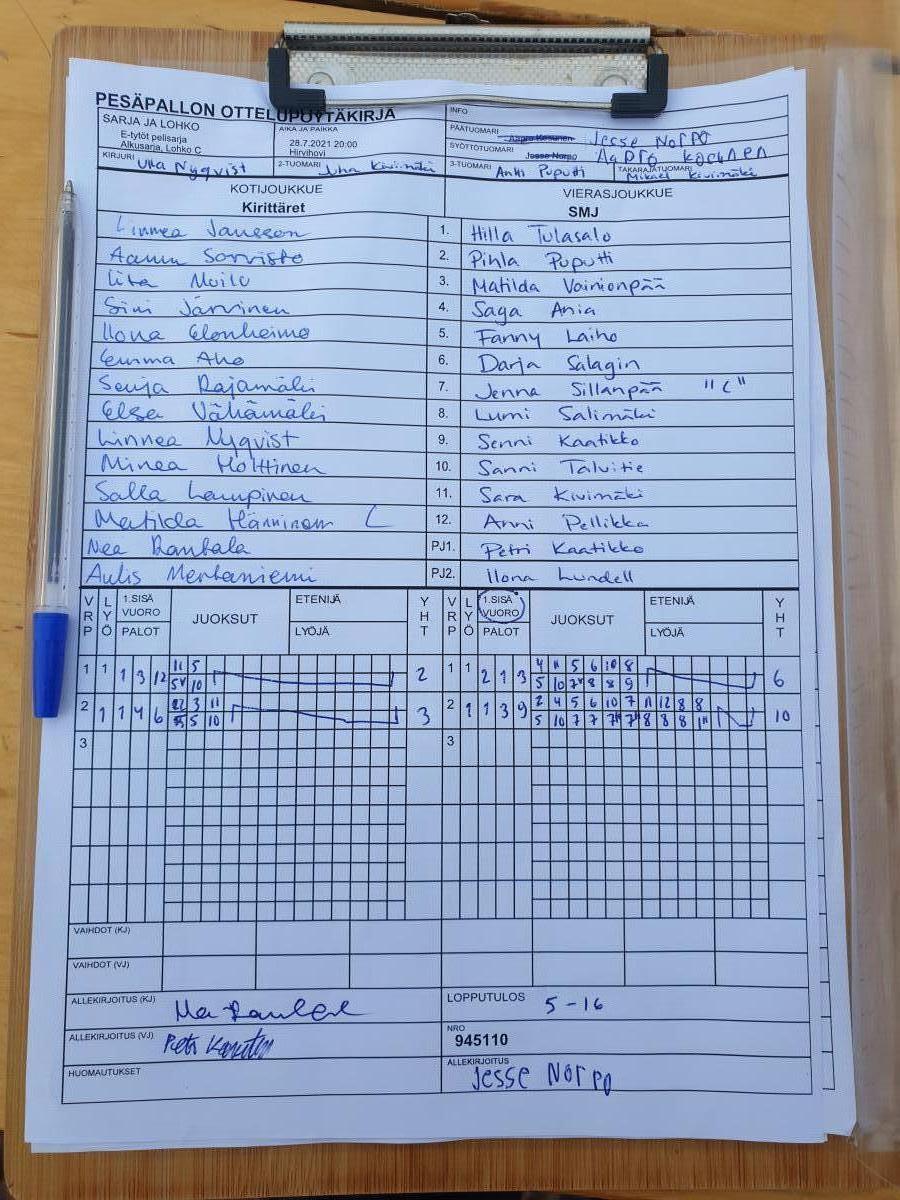 PESÄPALLON OTTELUPÖYTÄKIRJA
SARJA JA LOHKO
E-tytöt pelisarja
Alkusarja, Lohko C
AIKA JA PAIKKA
28.7.2021 20:00
Hirvihovi
INFO
PÄÄTUOMARI Aapro Kosunen Jesse Norpo
SYÖTTÖTUOMARI Jesse Norpo Aapro Kosunen
KIRJURI Nyqvist
2-TUOMARI Juha Kivimäki
3-TUOMARI Antti Puputti
TAKARAJATUOMARI Mikael Kivimäki
KOTIJOUKKUE
Kirittäret
VIERASJOUKKUE
SMJ
Linnea Jansson 1. Hilla Tulasalo
Sorvisto 2. Pihla Puputti
Moilo 3. Matilda Vainionpää
Sini Järvinen 4. Saga Ania
Ilona Elonheimo 5. Fanny Laiho
Emma Aho 6. Darja Salagin
Senja Rajamäki 7. Jenna Sillanpää "C"
Elsa Vähämäki 8. Lumi Salimäki
Linnea Nyqvist 9. Senni Kaatikko
Minea Holttinen 10. Sanni Talvitie
Salla Lampinen 11. Sara Kivimäki
Matilda Hänninen C 12. Anni Pellikka
Nea Rantala PJ1. Petri Kaatikko
Aulis Mertaniemi PJ2. Ilona Lundell
VRP LYÖ 1.SISÄ VUORO PALOT JUOKSUT ETENIJÄ LYÖJÄ YHT VRP LYÖ 1.SISÄ VUORO PALOT JUOKSUT ETENIJÄ LYÖJÄ YHT
1 1 1 3 12 11 5 2 1 1 2 1 3 4 11 5 6 10 8 6
10 5 10 8 8 9
2 1 1 4 6 3 11 3 2 1 1 3 9 2 4 5 6 10 7 11 12 8 8 10
5 10 5 10 7 7 8 8 8
3 3
VAIHDOT (KJ)
VAIHDOT (VJ)
ALLEKIRJOITUS (KJ) Nea Rantala
LOPPUTULOS 5-16
ALLEKIRJOITUS (VJ) Petri Kaatikko
NRO
945110
HUOMAUTUKSET
ALLEKIRJOITUS
Jesse Norpo